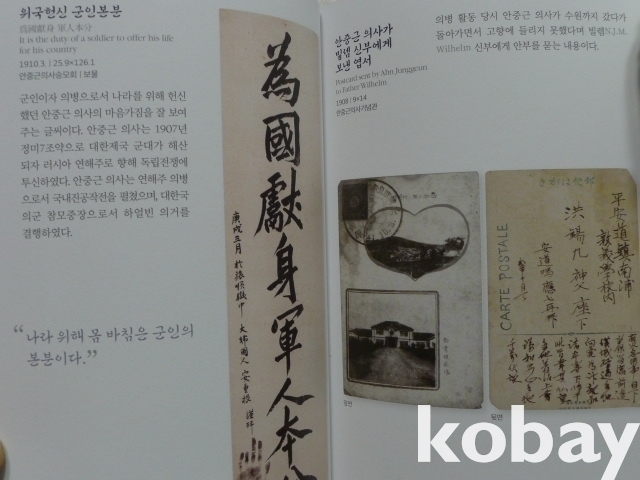 위국헌신 군인본분
為國獻身 軍人本分
It is the duty of a soldier to offer his life
for his country
1910.3 | 25.9×126.1
안중근의사숭모회 | 보물
군인이자 의병으로서 나라를 위해 헌신
했던 안중근 의사의 마음가짐을 잘 보여
주는 글씨이다. 안중근 의사는 1907년
정미7조약으로 대한제국 군대가 해산
되자 러시아 연해주로 향해 독립전쟁에
투신하였다. 안중근 의사는 연해주 의병
으로서 국내진공작전을 펼쳤으며, 대한국
의군 참모중장으로서 하얼빈 의거를
결행하였다.
“나라 위해 몸 바침은 군인의
본분이다.”
為國獻身軍人本分
庚戌三月 於旅順獄中 大韓國人 安重根 謹拜
안중근 의사가
빌렘 신부에게
보낸 엽서
Postcard sent by Ahn Junggeun
to Father Wilhelm
1908 | 9×14
안중근의사기념관
의병 활동 당시 안중근 의사가 수원까지 갔다가
돌아가면서 고향에 들리지 못했다며 빌렘N.J.M.
Wilhelm 신부에게 안부를 묻는 내용이다.
CARTE POSTALE
平安道鎭南浦
敦義學校內
洪錫九 神父 座下
뒷면
앞면
kobay